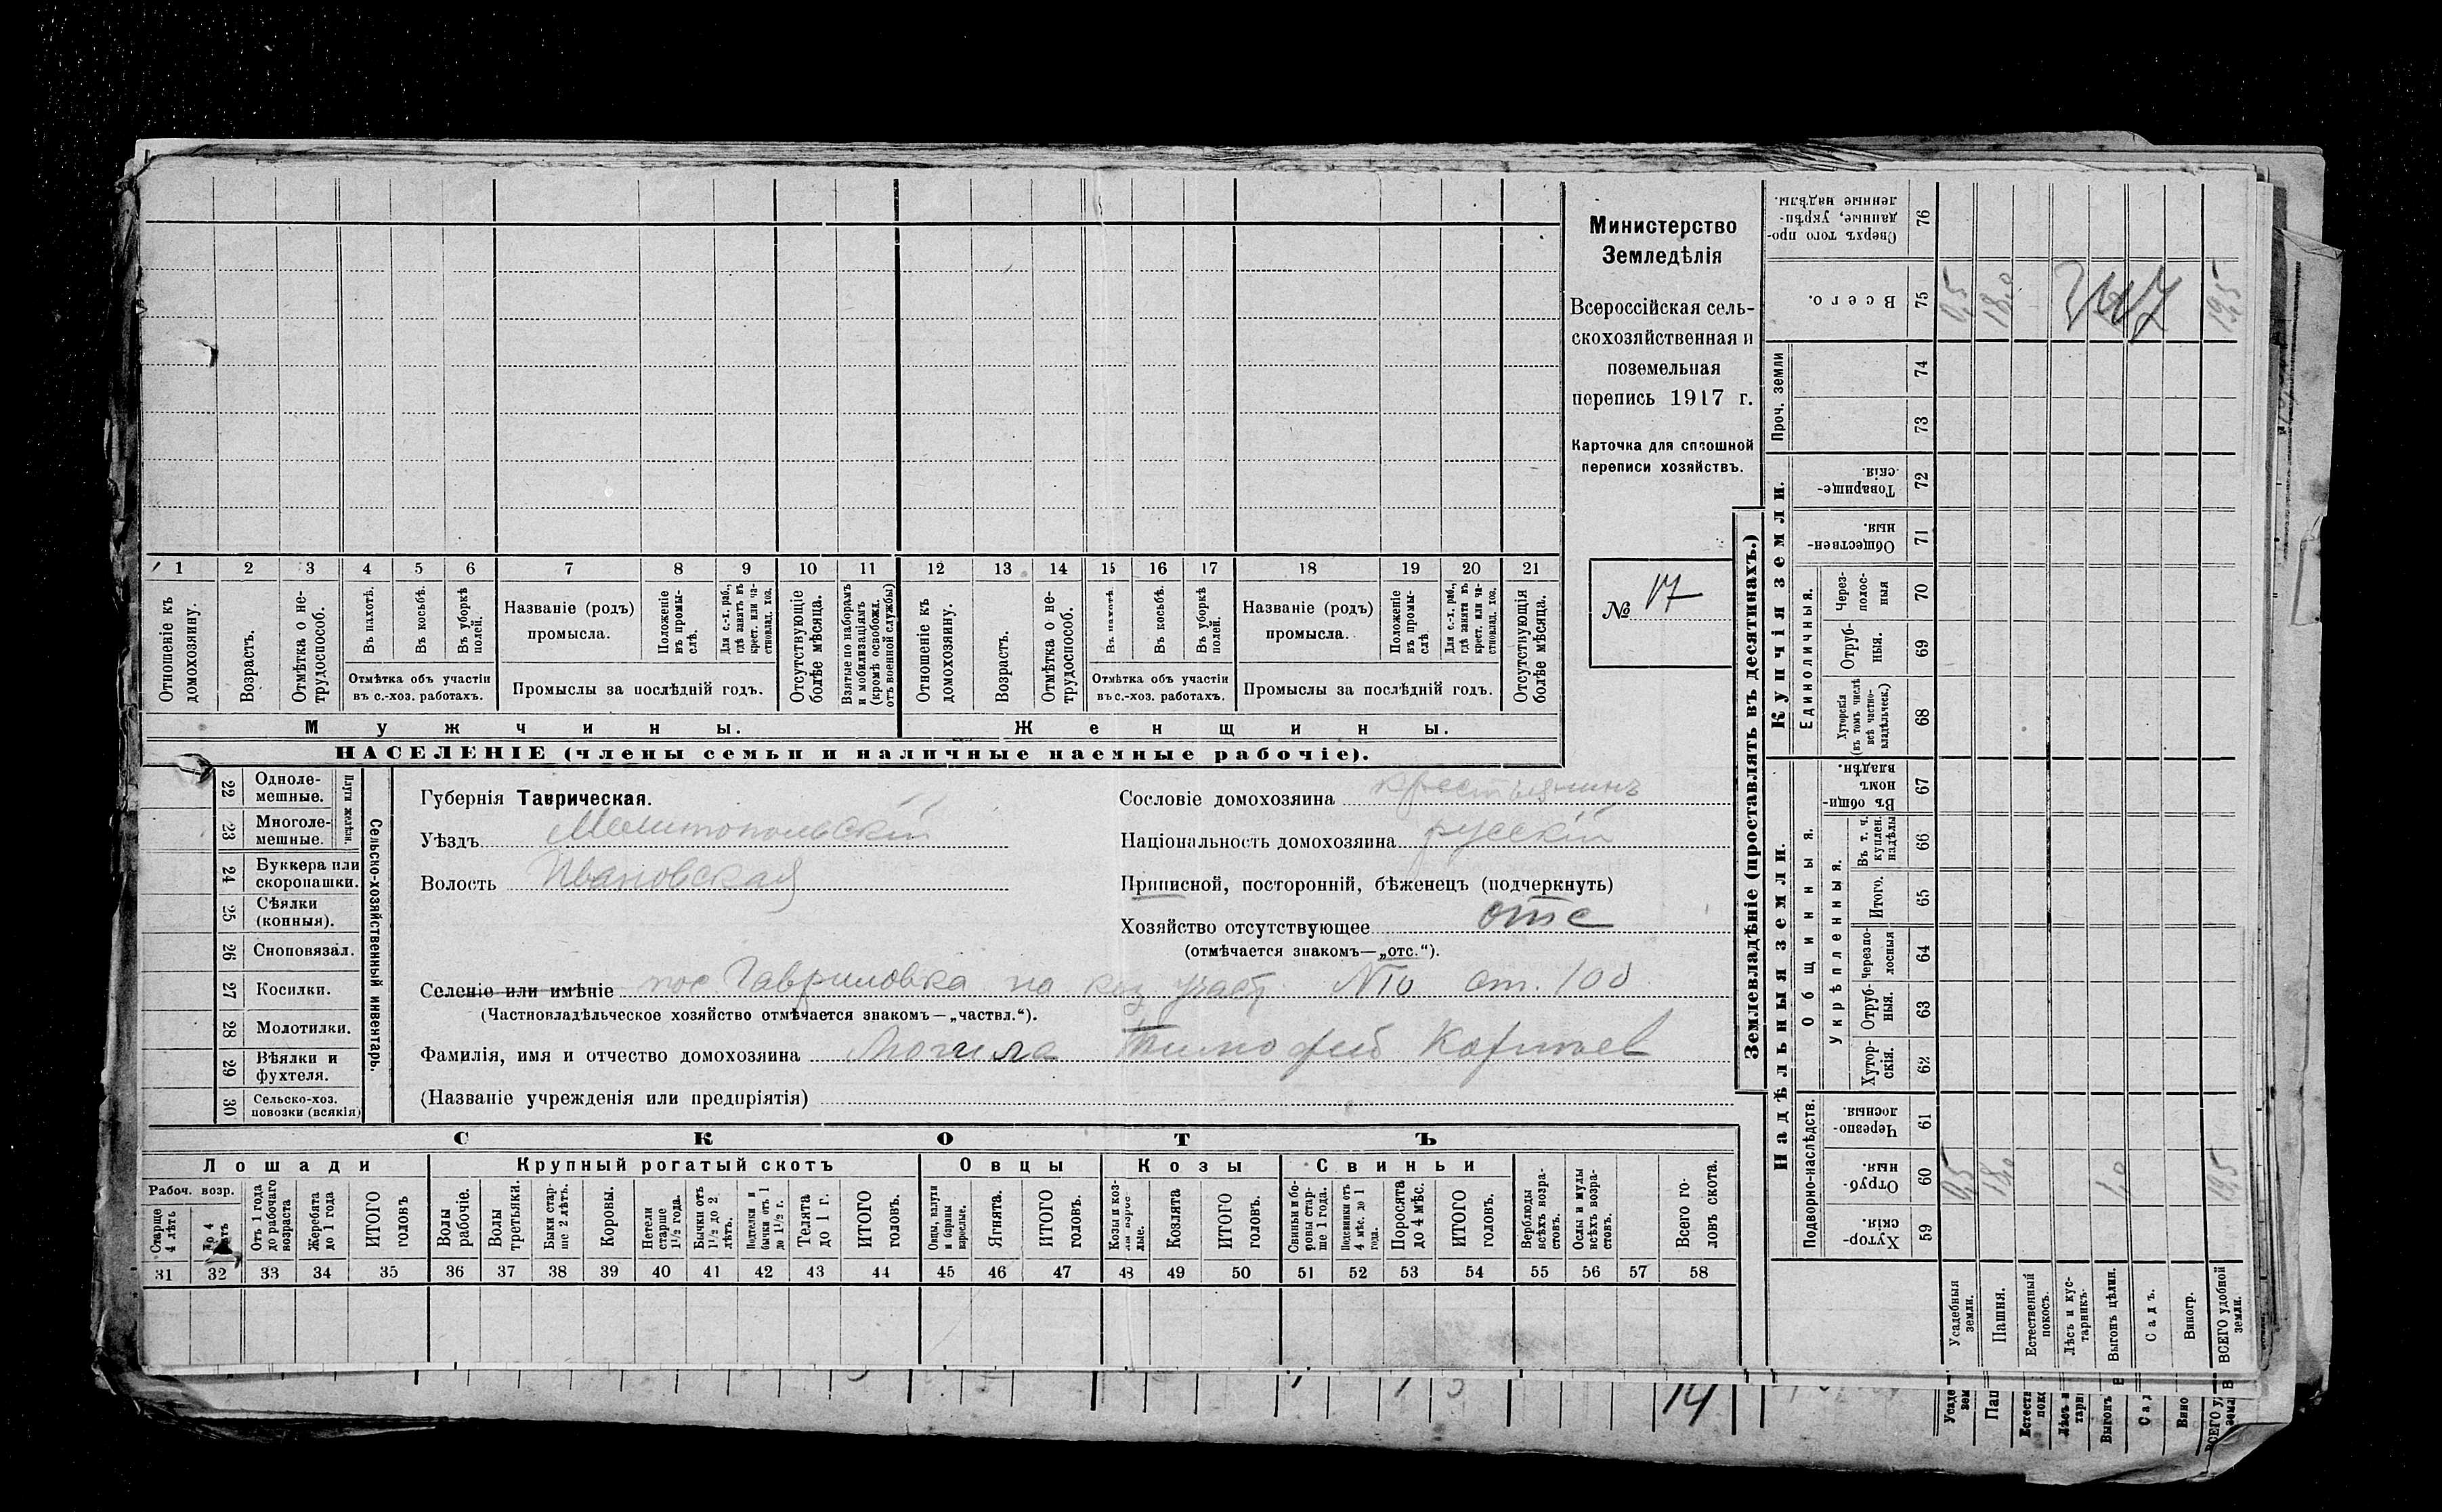 Министерство
Земледѣлія
Всероссійская сель-
скохозяйственная и
поземельная
перепись 1917 г.
Карточка для сплошной
переписи хозяйствъ.
№ 17
1 2 3 4 5 6 7 8 9 10 11 12 13 14 15 16 17 18 19 20 21
Отношеніе къ домохозяину.
Возрастъ.
Отмѣтка о не-трудоспособ.
Въ пахотѣ.
Въ косьбѣ.
Въ уборкѣ полей.
Отмѣтка объ участіи
въ с.-хоз. работахъ.
Названіе (родъ)
промысла.
Положеніе въ промы-слѣ.
Для с.-х. раб., гдѣ занятъ въ крест. или ча-стновлад. хоз.
Промыслы за послѣдній годъ.
Отсутствующіе болѣе мѣсяца.
Взятые по наборамъ и мобилизаціямъ (кромѣ освобожд. отъ военной службы)
Отношеніе къ домохозяину.
Возрастъ.
Отмѣтка о не-трудоспособ.
Въ пахотѣ.
Въ косьбѣ.
Въ уборкѣ полей.
Отмѣтка объ участіи
въ с.-хоз. работахъ.
Названіе (родъ)
промысла.
Положеніе въ промы-слѣ
Для с.-х. раб., гдѣ занята въ крест. или ча-стновлад. хоз.
Промыслы за послѣдній годъ.
Отсутствующія болѣе мѣсяца.
Мужчины.
Женщины.
НАСЕЛЕНІЕ (члены семьи и наличные наемные рабочіе).
22 Одноле-мешные.
23 Многоле-мешные.
Плуги желѣзн.
24 Буккера или скоропашки.
25 Сѣялки (конныя).
26 Сноповязал.
27 Косилки.
28 Молотилки.
29 Вѣялки и фухтеля.
30 Сельско-хоз. повозки (всякія)
Сельско-хозяйственный инвентарь.
Губернія Таврическая.
Уѣздъ Мелитопольскій
Волость Ивановская
Сословіе домохозяина крестьянинъ
Національность домохозяина русскій
Приписной, посторонній, бѣженецъ (подчеркнуть)
Хозяйство отсутствующее отс
(отмѣчается знакомъ—„отс.“).
Селеніе или имѣніе пос Гавриловка на каз участ. №10 от. 100
(Частновладѣльческое хозяйство отмѣчается знакомъ—„частвл.“).
Фамилія, имя и отчество домохозяина Могила Тимофей Карпіев
(Названіе учрежденія или предпріятія)
СКОТЪ
Лошади
Крупный рогатый скотъ
Овцы
Козы
Свиньи
Рабоч. возр.
Старще 4 лѣтъ
До 4 лѣтъ
Отъ 1 года до рабочаго возраста
Жеребята до 1 года
ИТОГО головъ
Волы рабочіе.
Волы третьяки.
Быки стар-ше 2 лѣтъ.
Коровы.
Нетели старше 1½ года.
Бычки отъ 1½ до 2 лѣтъ.
Подтелки и бычки отъ 1 до 1½ г.
Телята до 1 г.
ИТОГО головъ.
Овцы, валухи и бараны взрослые.
Ягнята.
ИТОГО головъ.
Козы и коз-лы взрос-лые.
Козлята
ИТОГО головъ.
Свиньи и бо-ровы стар-ше 1 года.
Подсвинки отъ 4 мѣс. до 1 года.
Поросята до 4 мѣс.
ИТОГО головъ.
Верблюды всѣхъ возра-стовъ.
Ослы и мулы всѣхъ возра-стовъ.
Всего го-ловъ скота.
31 32 33 34 35 36 37 38 39 40 41 42 43 44 45 46 47 48 49 50 51 52 53 54 55 56 57 58
14
Землевладѣніе (проставлять въ десятинахъ.)
Надѣльныя земли.
Купчія земли.
Проч. земли
Подворно-наслѣдств.
Общинныя.
Укрѣпленныя.
Единоличныя.
Сверхъ того про-данные, укрѣп-ленные надѣлы. 76
Всего. 75 0,5 18,0 19,5
74
73
Товарище-скія. 72
Обществен-ныя. 71
Через-полос-ныя 70
Отруб-ныя. 69
Хуторскія (въ томъ числѣ всѣ частно-владѣльческ.) 68
Въ общин-номъ владѣн. 67
Въ т. ч. куплен. надѣлы 66
Итого. 65
Черезпо-лосныя 64
Отруб-ныя. 63
Хутор-скія. 62
Черезпо-лосныя. 61
Отруб-ныя. 60 0,5 18,0 1,0 19,5
Хутор-скія. 59
Усадебныя земли.
Пашня.
Естественный покосъ.
Лѣсъ и кус-тарникъ.
Выгонъ цѣлин.
Садъ.
Виногр.
ВСЕГО удобной земли.